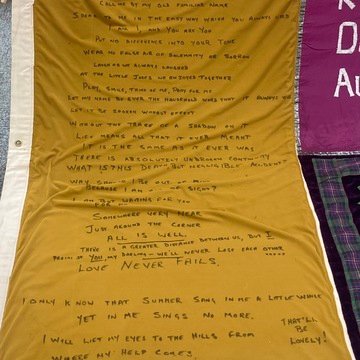 CALL ME BY MY OLD FAMILIAR NAME
SPEAK TO ME IN THE EASY WAY WHICH YOU ALWAYS USED
I AM I AND YOU ARE YOU
PUT NO DIFFERENCE INTO YOUR TONE
WEAR NO FALSE AIR OF SOLEMNITY OR SORROW
LAUGH AS WE ALWAYS LAUGHED
AT THE LITTLE JOKES WE ENJOYED TOGETHER
PLAY, SMILE, THINK OF ME, PRAY FOR ME
LET MY NAME BE EVER THE HOUSEHOLD WORD THAT IT ALWAYS WAS
LET IT BE SPOKEN WITHOUT EFFECT
WITHOUT THE TRACE OF A SHADOW ON IT
LIFE MEANS ALL THAT IT EVER MEANT
IT IS THE SAME AS IT EVER WAS
THERE IS ABSOLUTELY UNBROKEN CONTINUITY
WHAT IS THIS DEATH BUT NEGLIGIBLE ACCIDENT
WHY SHOULD I BE OUT OF
BECAUSE I AM OF SIGHT?
I AM BUT WAITING FOR YOU
FOR
SOMEWHERE VERY NEAR
JUST AROUND THE CORNER
ALL IS WELL.
THERE IS A GREATER DISTANCE BETWEEN US, BUT I
PROMISE YOU, MY DARLING - WE'LL NEVER LOSE EACH OTHER
LOVE NEVER FAILS.
I ONLY KNOW THAT SUMMER SANG IN ME A LITTLE WHILE
YET IN ME SINGS NO MORE.
I WILL LIFT MY EYES TO THE HILLS FROM
WHERE MY HELP COMES.
THAT'LL
BE
LOVELY!
D
AU